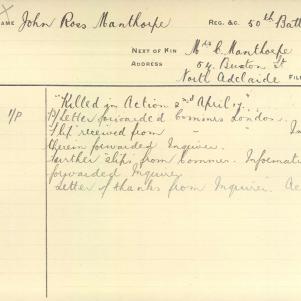 NAME John Ross Manthorpe REG. &C. 50th Batt
NEXT OF KIN Mrs C. Manthorpe
ADDRESS 54 Buxton St
North Adelaide FILE
"Killed in Action 2nd April 17."
1/P Letter forwarded Commrs London.
Slip received from " " In
therein forwarded Inquirer.
Further "slips" from Commrs. Informati
forwarded Inquirer
Letter of thanks from Inquirer. Ac